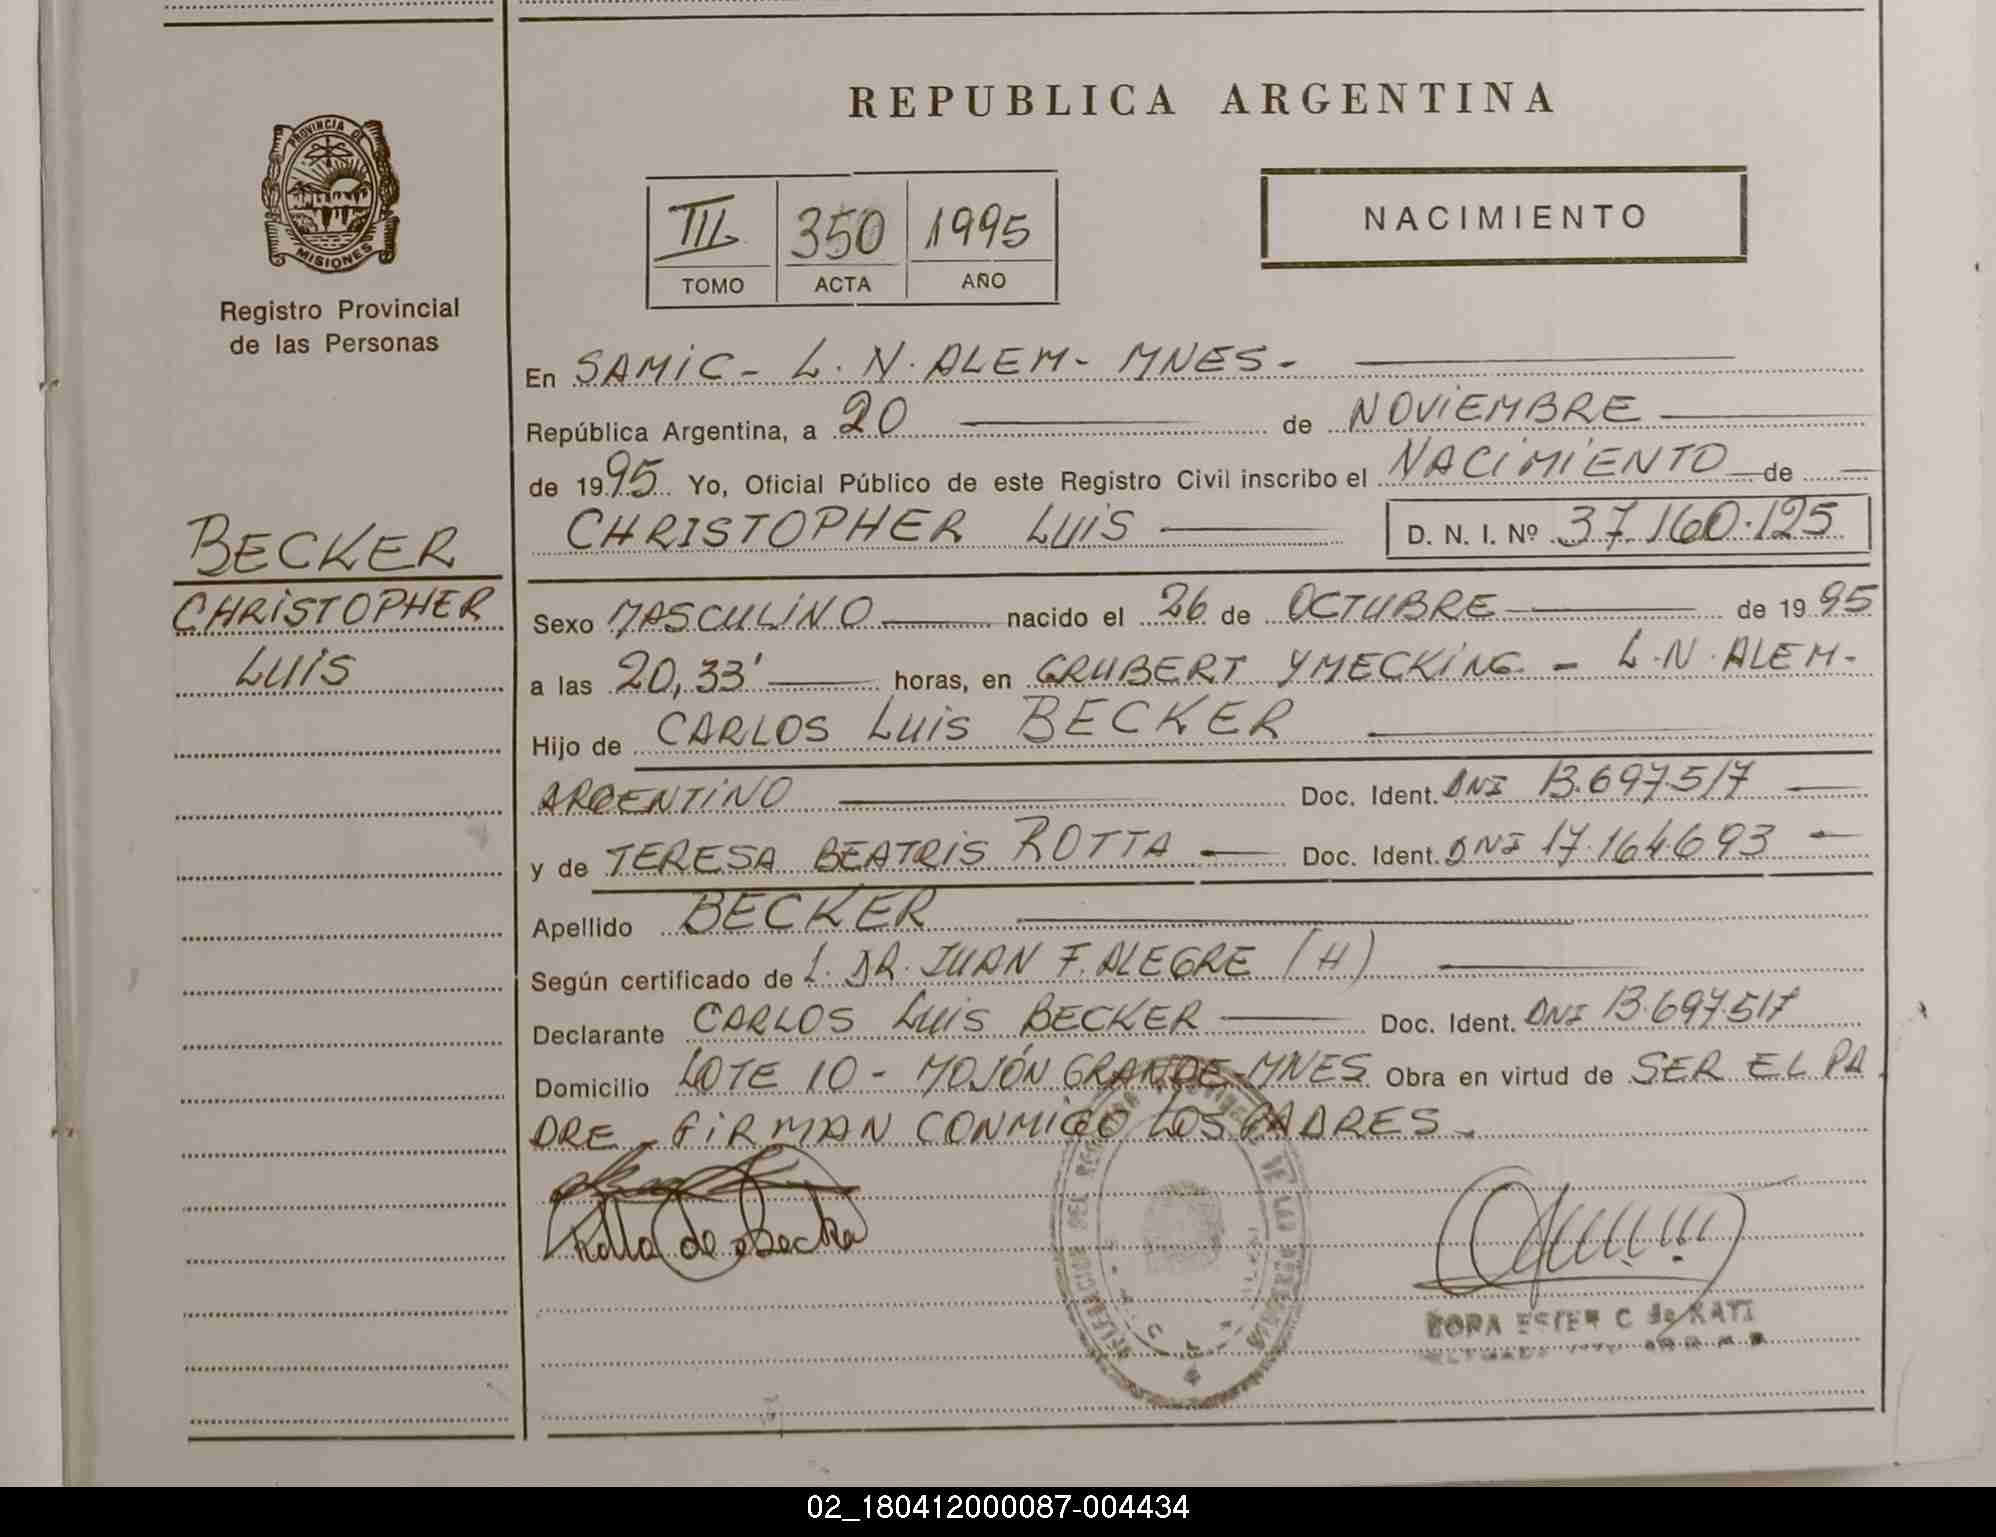 REPUBLICA ARGENTINA
PROVINCIA DE
MISIONES
Registro Provincial
de las Personas
III 350 1995
TOMO ACTA AÑO
NACIMIENTO
BECKER
CHRISTOPHER
LUIS
En SAMIC - L. N. ALEM - MNES -
República Argentina, a 20 de NOVIEMBRE
de 1995 Yo, Oficial Público de este Registro Civil inscribo el NACIMIENTO de
CHRISTOPHER LUIS D. N. I. Nº 37.160.125
Sexo MASCULINO nacido el 26 de OCTUBRE de 1995
a las 20,33' horas, en GRUBERT Y MECKING - L. N. ALEM -
Hijo de CARLOS LUIS BECKER
ARGENTINO Doc. Ident. DNI 13.697.517
y de TERESA BEATRIS ROTTA Doc. Ident. DNI 17.164.693
Apellido BECKER
Según certificado de L. DR. JUAN F. ALEGRE (H)
Declarante CARLOS LUIS BECKER Doc. Ident. DNI 13.697.517
Domicilio LOTE 10 - MOJÓN GRANDE - MNES Obra en virtud de SER EL PA
DRE - FIRMAN CONMIGO LOS PADRES -
Rotta de Becker
DORA ESTER C de KATI
02_180412000087-004434